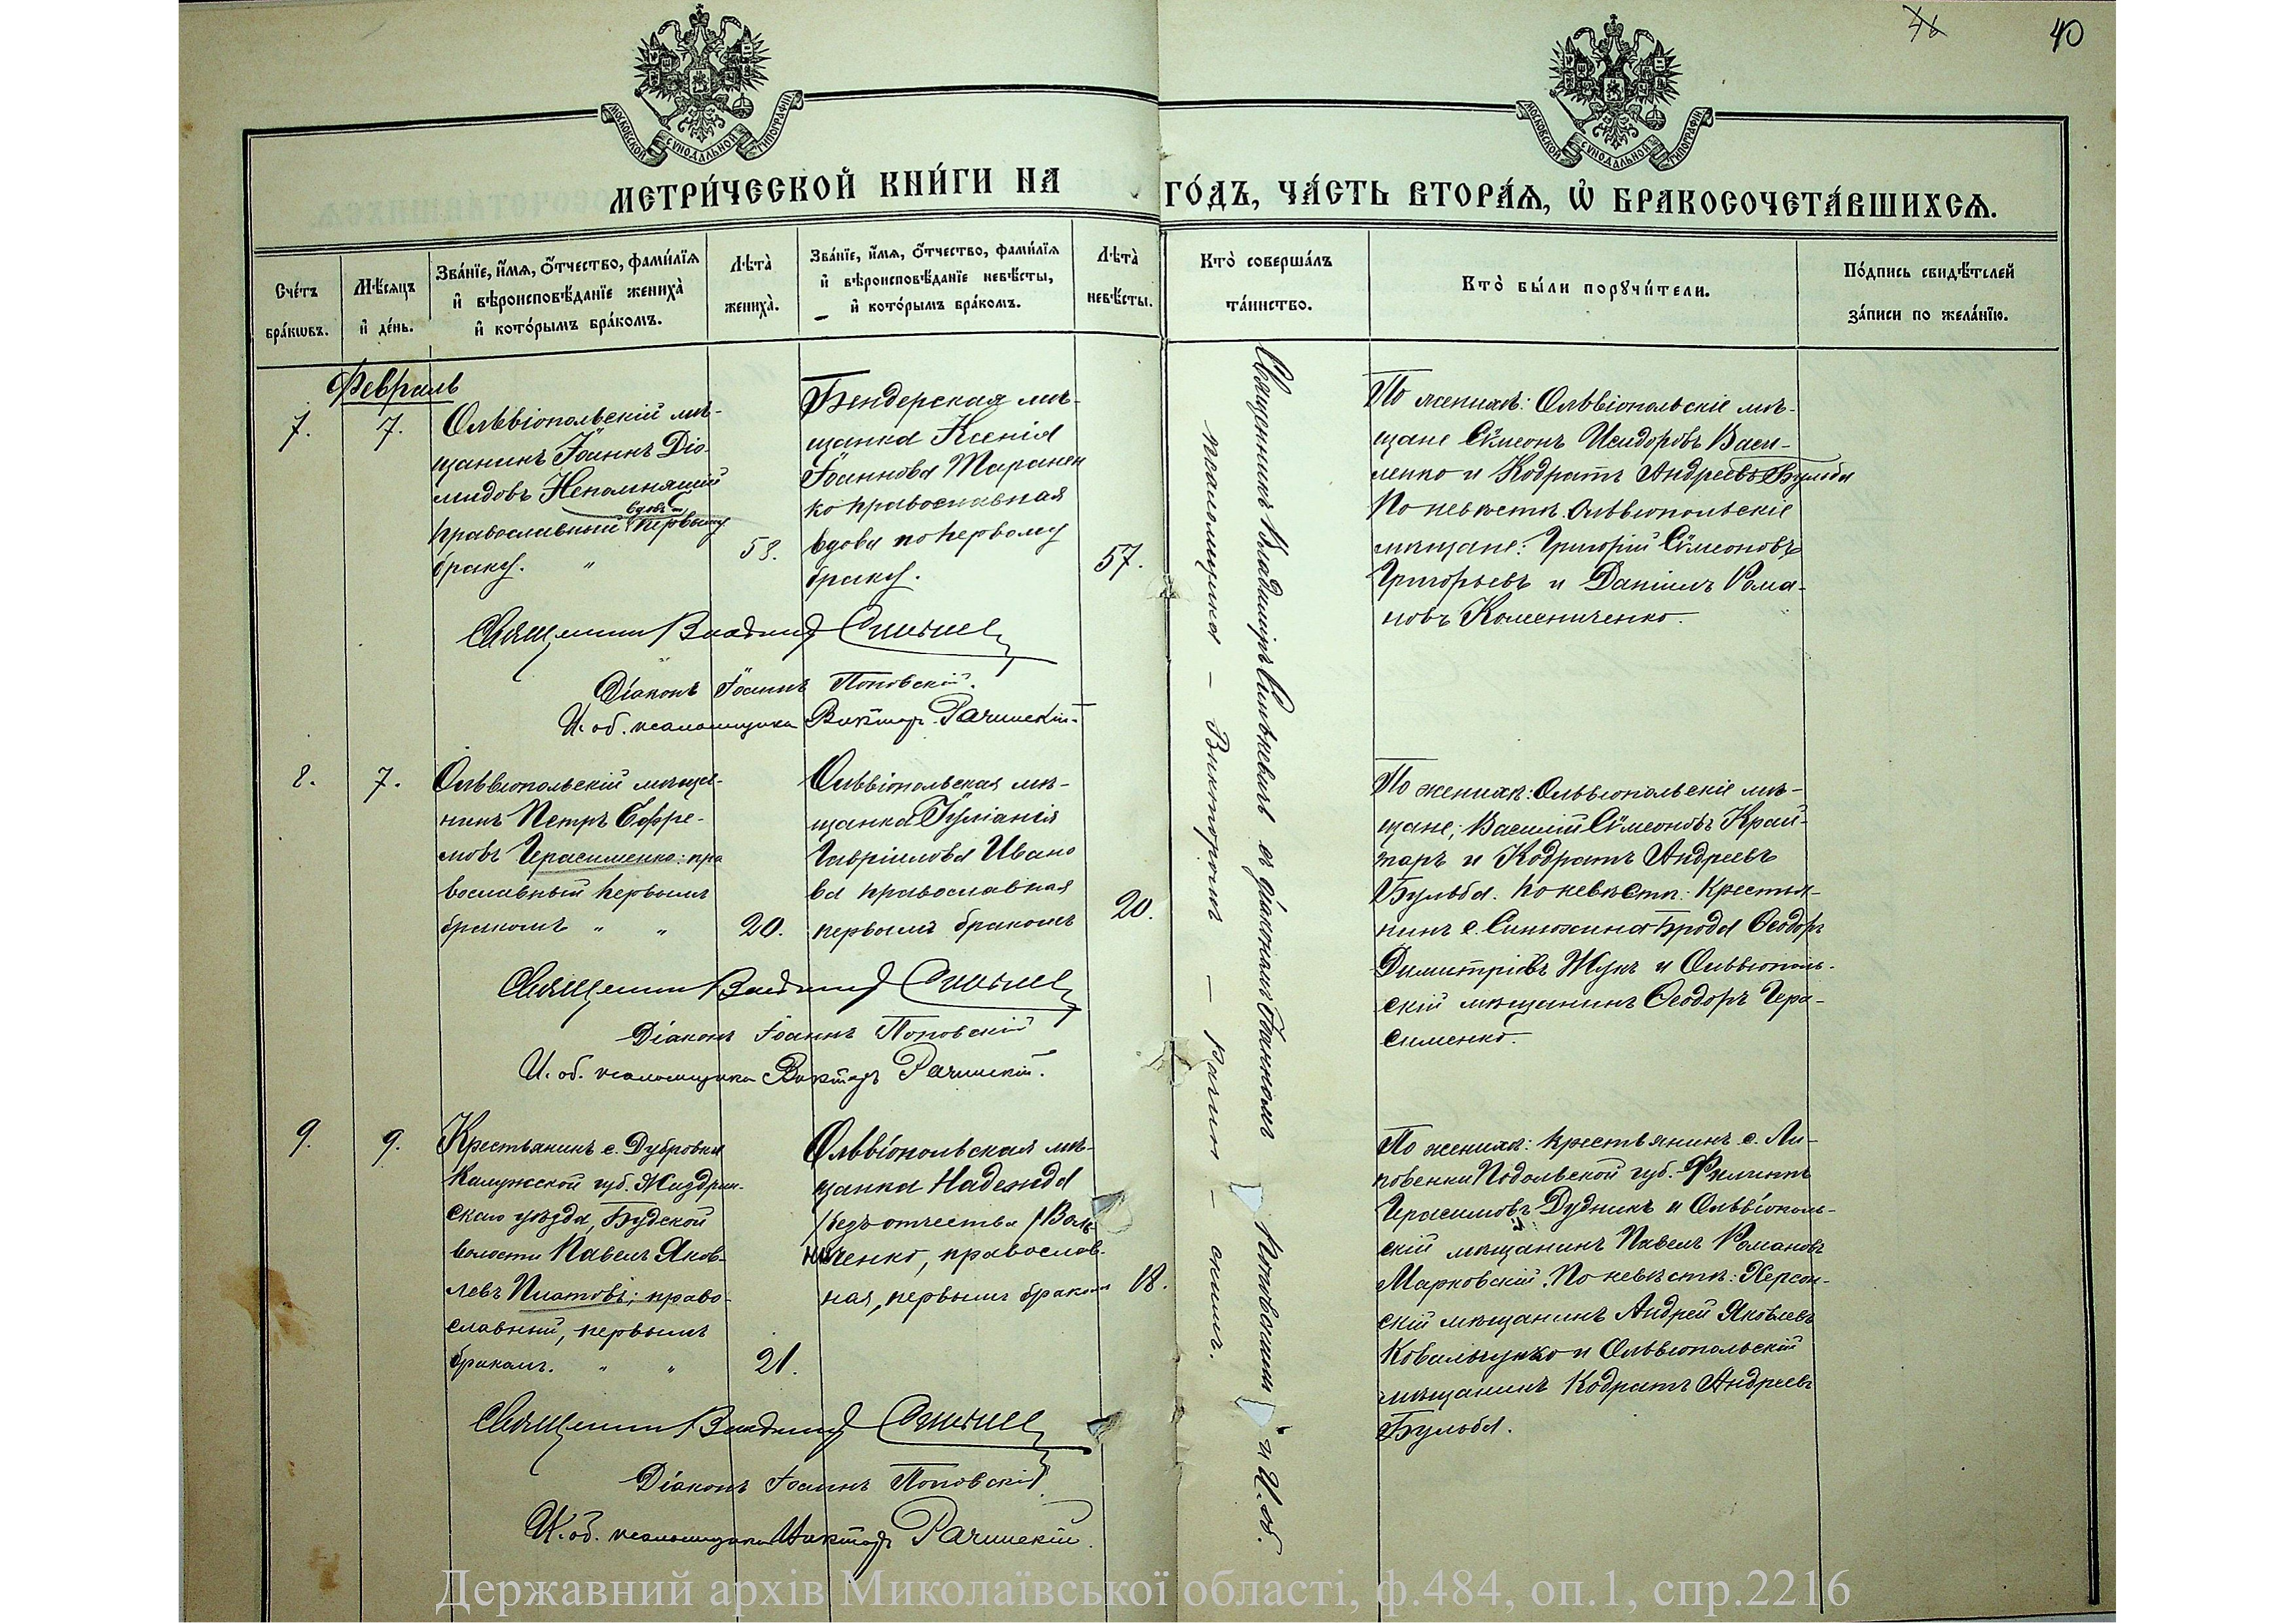 46
40
МОСКОВСКОЙ СУНОДАЛЬНОЙ ТИПОГРАФІИ
МОСКОВСКОЙ СУНОДАЛЬНОЙ ТИПОГРАФІИ
МЕТРИ́ЧЕСКОЙ КНИ́ГИ НА
ГО́ДЪ, ЧА́СТЬ ВТОРА́Ѧ, Ѡ҆ БРАКОСОЧЕТА́ВШИХСѦ.
Сче́тъ
бра́кѡвъ.
Мѣ́сяцъ
и҆ де́нь.
Зва́нїе, и҆́мѧ, ѻ҆́тчество, фами́лїѧ
и҆ вѣроисповѣ́данїе жениха̀
и҆ кото́рымъ бра́комъ.
Лѣ́та̀
жениха̀.
Зва́нїе, и҆́мѧ, ѻ҆́тчество, фами́лїѧ
и҆ вѣроисповѣ́данїе невѣ́сты,
и҆ кото́рымъ бра́комъ.
Лѣ́та̀
невѣ́сты.
Кто̀ соверша́лъ
та́инство.
Кто̀ бы́ли порꙋчи́тели.
По́дпись свидѣ́телей
за́писи по жела́нїю.
Февраль
7.
7.
Ольвіопольскій мѣ-
щанинъ Іоаннъ Діо-
мидовъ Непомнящій
вдовъ
православный первому
браку. "
58.
Бендерская мѣ-
щанка Ксенія
Іоаннова Таранен
ко православная
вдова по первому
браку.
57.
Священникъ Владиміръ Сильневичъ съ діакономъ Іоанномъ Поповскимъ и И. об.
псаломщика - Викторомъ - Рачин - скимъ.
По женихѣ: Ольвіопольскіе мѣ-
щане Сѵмеонъ Исидоровъ Васи-
ленко и Кодратъ Андреевъ Бульба
По невѣстѣ. Ольвіопольскіе
мѣщане: Григорій Сѵмеоновъ
Григорьевъ и Даніилъ Рома-
новъ Коменниченко.
Священникъ Владимір
Діаконъ Іоаннъ Поповскій.
И. об. псаломщика Викторъ Рачинскій.
8.
7.
Ольвіопольскій мѣща-
нинъ Петръ Ефре-
мовъ Герасименко: пра
вославный первымъ
бракомъ " "
20.
Ольвіопольская мѣ-
щанка Іуліанія
Гавріилова Ивано
ва православная
первымъ бракомъ
20.
По женихѣ: Ольвіопольскіе мѣ-
щане; Василій Сѵмеоновъ Край-
таръ и Кодратъ Андреевъ
Бульба. По невѣстѣ: Крестья-
нинъ с. Синюхина Брода Ѳеодоръ
Димитріевъ Жукъ и Ольвіополь-
скій мѣщанинъ Ѳеодоръ Гера-
сименко.
Священникъ Владимір
Діаконъ Іоаннъ Поповскій
И. об. псаломщика Викторъ Рачинскій.
9.
9.
Крестьянинъ с. Дубровки
Калужской губ. Жиздрин-
скаго уѣзда, Будской
волости Павелъ Яков-
левъ Платовъ; право-
славный, первымъ
бракомъ. " "
21.
Ольвіопольская мѣ-
щанка Надежда
/безъ отчества/ Валь
ниченко, православ-
ная, первымъ бракомъ
18.
По женихѣ: крестьянинъ с. Ли-
повенки Подольской губ. Филиппъ
Герасимовъ Дудникъ и Ольвіополь-
скій мѣщанинъ Павелъ Романовъ
Марковскій. По невѣстѣ: Херсон-
скій мѣщанинъ Андрей Яковлевъ
Ковальчукъ и Ольвіопольскій
мѣщанинъ Кодратъ Андреевъ
Бульба.
Священникъ Владимір
Діаконъ Іоаннъ Поповскій
И. об. псаломщика Викторъ Рачинскій.
Державний архів Миколаївської області, ф.484, оп.1, спр.2216